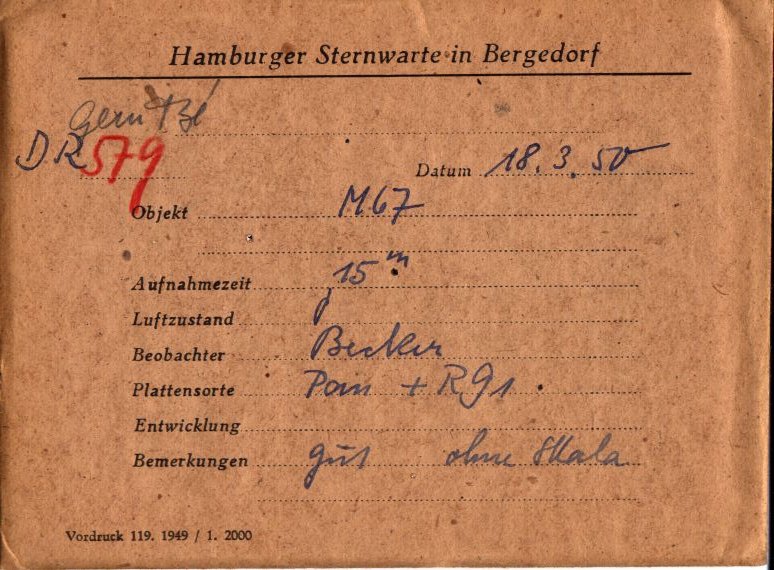 Hamburger Sternwarte in Bergedorf
DR 579
Datum 18.3.50
Objekt M67
Aufnahmezeit 15 m
Luftzustand
Beobachter Becker
Plattensorte Pan + RG1
Entwicklung
Bemerkungen gut ohne Skala
Vordruck 119. 1949 / 1. 2000